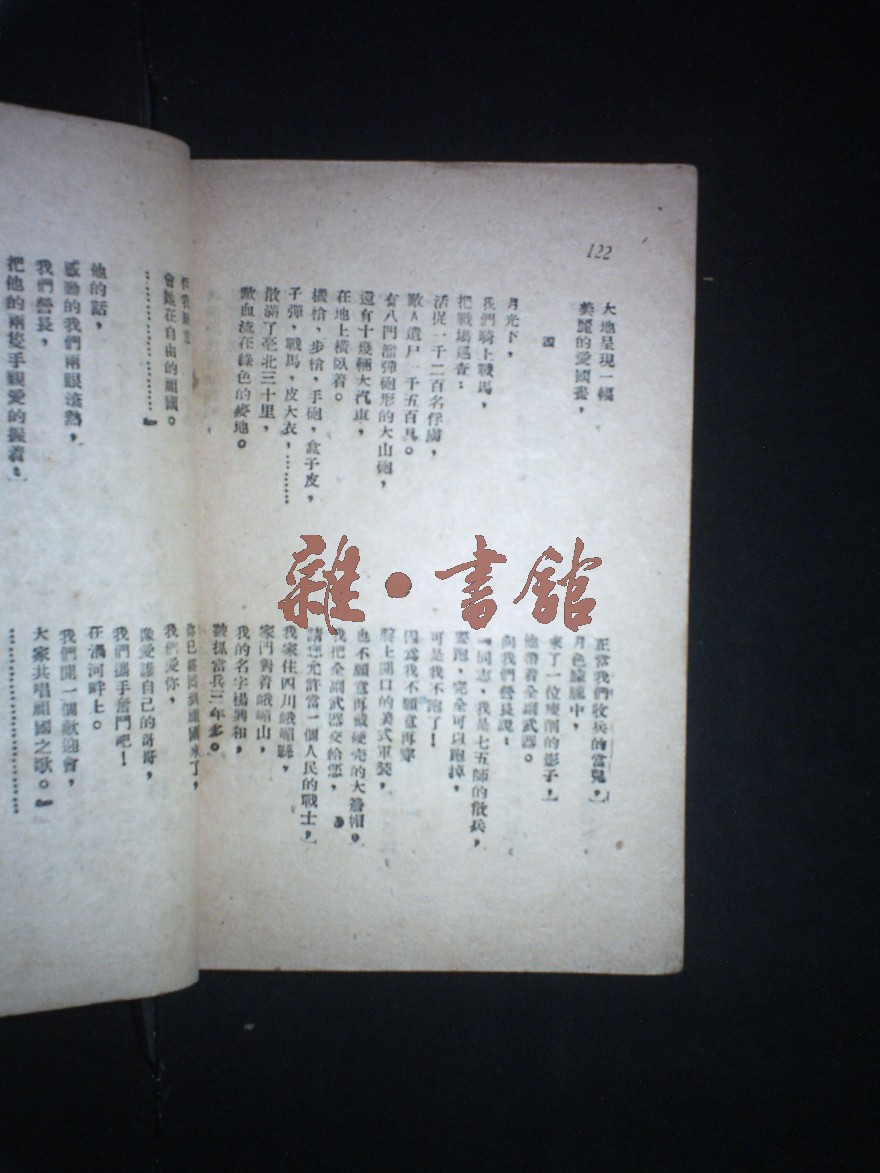 122
大地呈現一幅
美麗的愛國畫，
四
月光下，
我們騎上戰馬，
把戰場巡查：
活捉一千二百名俘虜，
敵人遺尸一千五百具。
有八門溜彈砲形的大山砲，
還有十幾輛大汽車，
在地上橫臥着。
機槍，步槍，手砲，盒子皮，
子彈，戰馬，皮大衣，………
散滿了亳北三十里，
敵血流在綠色的麥地。
正當我們收兵的當兒，
月色朦朧中，
來了一位瘦削的影子，
他帶着全副武器。
向我們營長說：
『同志，我是七五師的散兵，
要跑，完全可以跑掉，
可是我不跑了！
因為我不願意再穿
臀上開口的美式軍裝，
也不願意再戴硬壳的大簷帽。
我把全副武器交給您，
請您允許當一個人民的戰士，
我家住四川峨嵋縣，
家門對着峨嵋山，
我的名字楊興和，
被抓當兵三年多。
會師在自由的祖國。
………………』
他的話，
感動的我們兩眼滾熱，
我們營長，
把他的兩隻手親愛的握着：
你已經回到祖國來了，
我們愛你，
像愛護自己的哥哥，
我們攜手奮鬥吧！
在渦河畔上。
我們開一個歡迎會，
大家共唱祖國之歌。』
………………
雜·書館